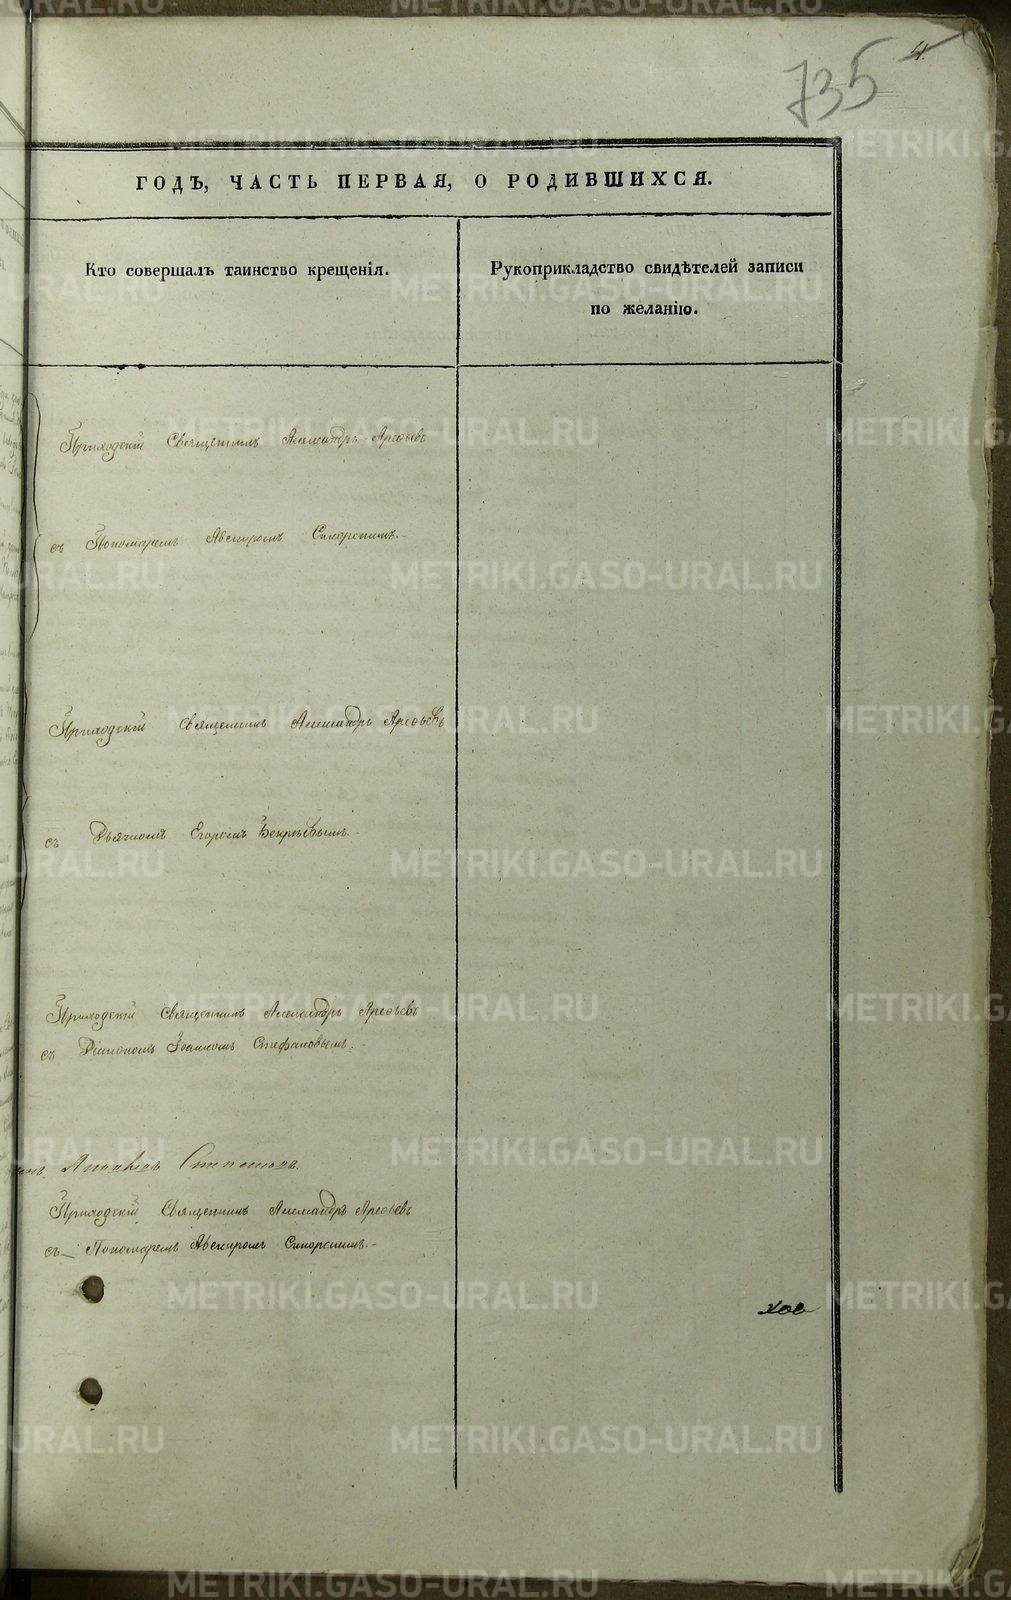 735
4.
ГОДЪ, ЧАСТЬ ПЕРВАЯ, О РОДИВШИХСЯ.
Кто совершалъ таинство крещенія.
Рукоприкладство свидѣтелей записи
по желанію.
Приходскій Священникъ Александръ Арефьевъ
съ Пономаремъ Авениромъ Сикорскимъ.-
Приходскій Священникъ Александръ Арефьевъ
съ Дьячкомъ Егоромъ Бекрѣевымъ.-
Приходскій Священникъ Александръ Арефьевъ
съ Діакономъ Іоанномъ Стефановымъ.-
Приходскій Священникъ Александръ Арефьевъ
съ Пономаремъ Авениромъ Сикорскимъ.-
METRIKI.GASO-URAL.RU